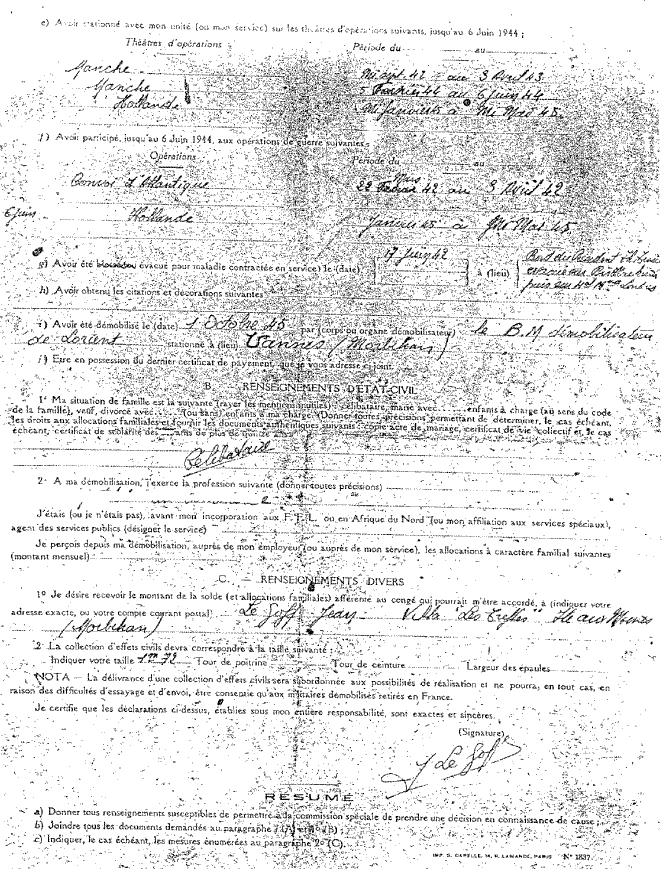 e) Avoir stationné avec mon unité (ou mon service) sur les théâtres d'opérations suivants, jusqu'au 6 Juin 1944 ;
Théâtres d'opérations Période du au
Manche 42 au 3 Avril 43
Manche 5 44 au 6 Juin 44
Hollande à Mi Mai 45
f) Avoir participé, jusqu'au 6 Juin 1944, aux opérations de guerre suivantes
Opérations Période du au
Convoi d'Atlantique 22 Mars 42 au 3 Avril 42
6 juin Hollande Janvier 45 à Mi Mai 45
g) Avoir été blessé ou évacué pour maladie contractée en service) le (date) 17 Juin 42 à (lieu)
h) Avoir obtenu les citations et décorations suivantes
i) Avoir été démobilisé le (date) 1 Octobre 45 par (corps ou organe démobilisateur) le B.M démobilisateur
de Lorient stationné à (lieu) Vannes (Morbihan)
j) Etre en possession du dernier certificat de payement, que je vous adresse ci-joint.
B. — RENSEIGNEMENTS D'ETAT-CIVIL
1° Ma situation de famille est la suivante (rayer les mentions inutiles) : célibataire, marié avec enfants à charge (au sens du code
de la famille), veuf, divorcé avec (ou sans) enfants à ma charge (Donner toutes précisions permettant de déterminer, le cas échéant,
les droits aux allocations familiales et fournir les documents authentiques suivants : copie acte de mariage, certificat de vie collectif et, le cas
échéant, certificat de scolarité des enfants de plus de quinze
Célibataire
2° A ma démobilisation, j'exerce la profession suivante (donner toutes précisions)
J'étais (ou je n'étais pas), avant mon incorporation aux F.F.L. ou en Afrique du Nord (ou mon affiliation aux services spéciaux),
agent des services publics (désigner le service)
Je perçois depuis ma démobilisation, auprès de mon employeur (ou auprès de mon service), les allocations à caractère familial suivantes
(montant mensuel)
C. — RENSEIGNEMENTS DIVERS
1° Je désire recevoir le montant de la solde (et allocations familiales) afférente au congé qui pourrait m'être accordé, à (indiquer votre
adresse exacte, ou votre compte courant postal) Le Goff Jean Villa "Les Trèfles" Ile aux Moines
(Morbihan)
2° La collection d'effets civils devra correspondre à la taille suivante :
Indiquer votre taille 1m 72 Tour de poitrine Tour de ceinture Largeur des épaules
NOTA — La délivrance d'une collection d'effets civils sera subordonnée aux possibilités de réalisation et ne pourra, en tout cas, en
raison des difficultés d'essayage et d'envoi, être consentie qu'aux militaires démobilisés retirés en France.
Je certifie que les déclarations ci-dessus, établies sous mon entière responsabilité, sont exactes et sincères.
(Signature)
J Le Goff
RESUME
a) Donner tous renseignements susceptibles de permettre à la commission spéciale de prendre une décision en connaissance de cause ;
b) Joindre tous les documents demandés au paragraphe
c) Indiquer, le cas échéant, les mesures énumérées au paragraphe 2° (C).
IMP. S. CAPELLE, PARIS N° 1837